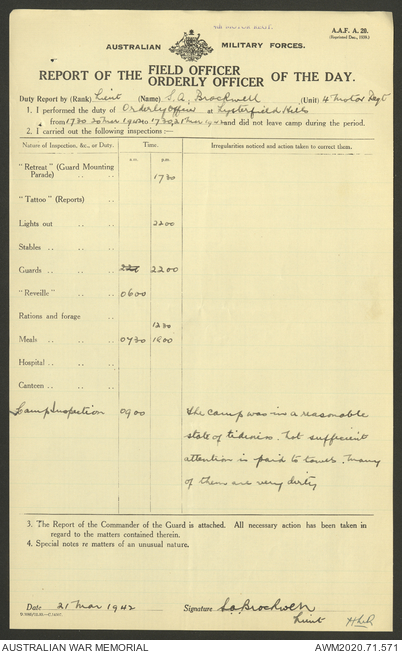 4TH MOTOR REGT.
A.A.F. A. 20.
(Reprinted Dec., 1939.)
AUSTRALIAN MILITARY FORCES.
REPORT OF THE FIELD OFFICER ORDERLY OFFICER OF THE DAY.
Duty Report by (Rank) Lieut (Name) S.A. Brockwell (Unit) 4 Motor Regt
1. I performed the duty of Orderly Officer at Lysterfield Hills
from 1730 20 Mar 1942 to 1730 21 Mar 1942 and did not leave camp during the period.
2. I carried out the following inspections :—
Nature of Inspection, &c., or Duty. Time. Irregularities noticed and action taken to correct them.
a.m. p.m.
"Retreat" (Guard Mounting
Parade) 1730
"Tattoo" (Reports) ..
Lights out .. .. 2200
Stables .. .. ..
Guards .. .. .. 2200
"Reveille" .. .. 0600
Rations and forage ..
1230
Meals .. .. .. 0730 1800
Hospital .. .. ..
Canteen .. .. ..
Camp Inspection 0900 The camp was in a reasonable
state of tidiness. Not sufficient
attention is paid to towels. Many
of them are very dirty
3. The Report of the Commander of the Guard is attached. All necessary action has been taken in
regard to the matters contained therein.
4. Special notes re matters of an unusual nature.
Date 21 Mar 1942 Signature S.A. Brockwell
Lieut
AUSTRALIAN WAR MEMORIAL AWM2020.71.571